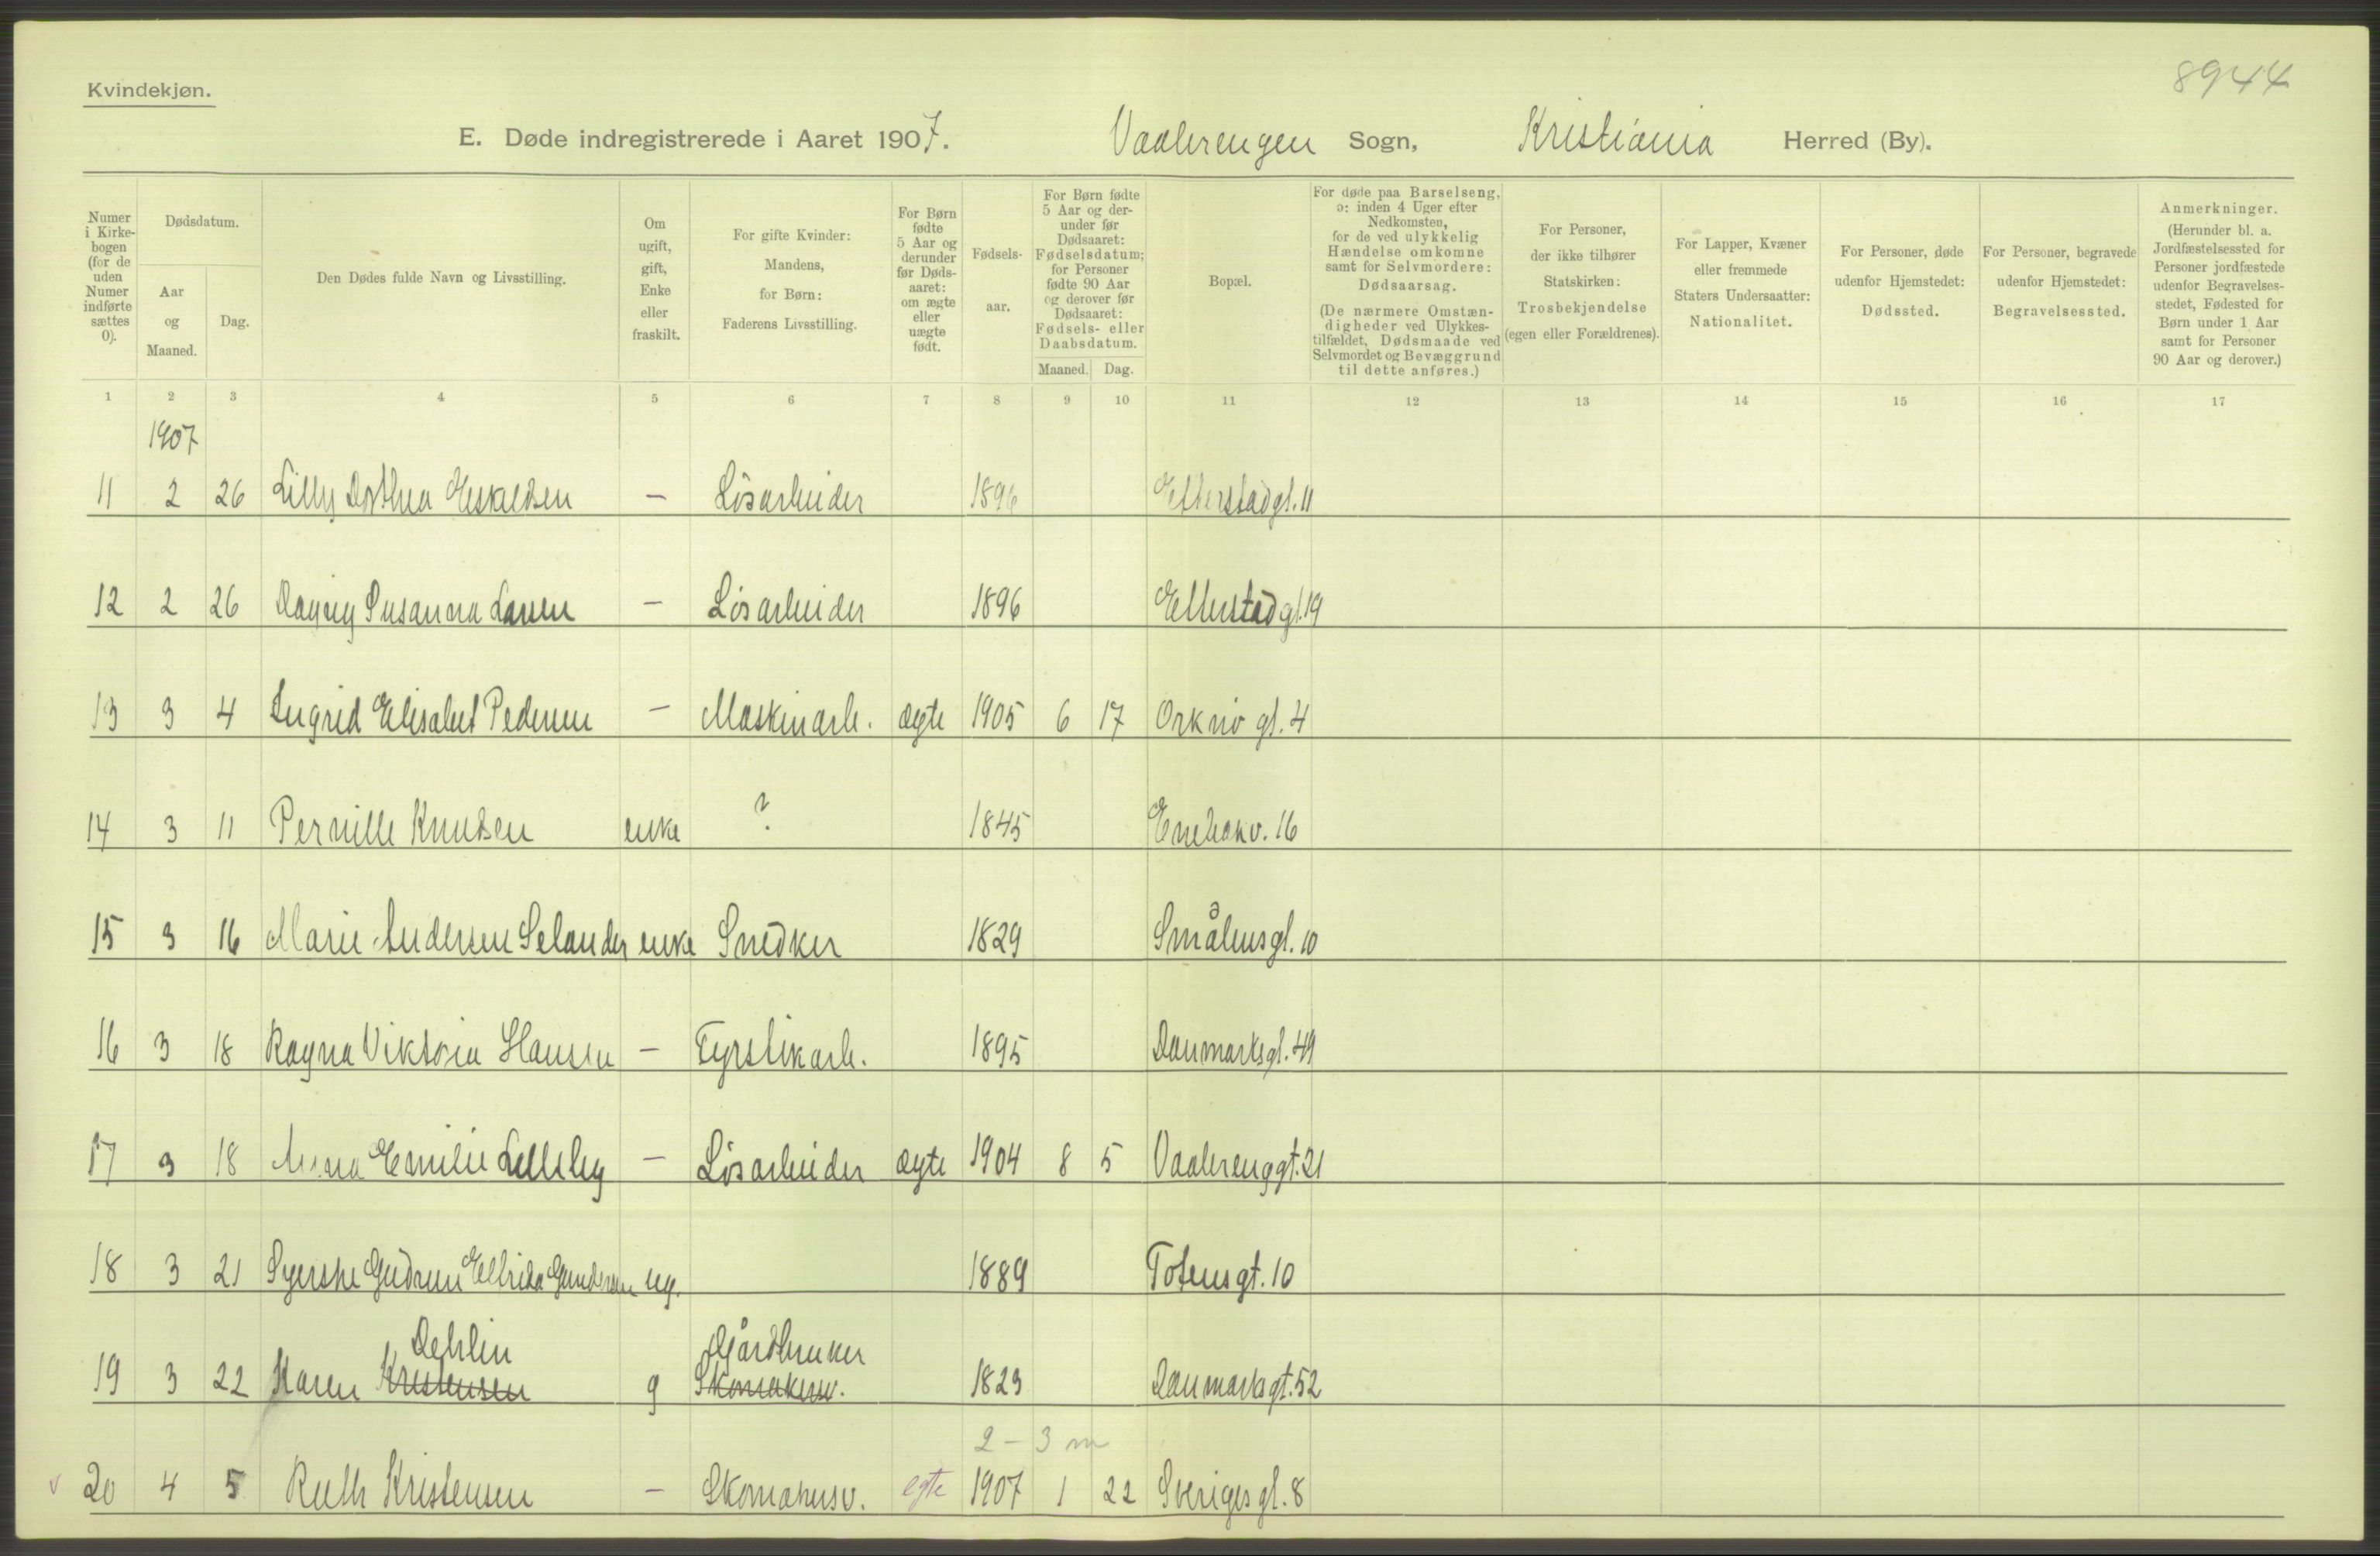 8944
Kvindekjøn.
E. Døde indregistrerede i Aaret 1907. Vaalerengen Sogn, Kristiania Herred (By).
Numer i Kirkebogen (for de uden Numer indførte sættes 0).
Dødsdatum.
Aar og Maaned.
Dag.
Den Dødes fulde Navn og Livsstilling.
Om ugift, gift, Enke eller fraskilt.
For gifte Kvinder: Mandens, for Børn: Faderens Livsstilling.
For Børn fødte 5 Aar og derunder før Dødsaaret: om ægte eller uægte født.
Fødselsaar.
For Børn fødte 5 Aar og derunder før Dødsaaret: Fødselsdatum; for Personer fødte 90 Aar og derover før Dødsaaret: Fødsels- eller Daabsdatum.
Maaned. Dag.
Bopæl.
For døde paa Barselseng, ɔ: inden 4 Uger efter Nedkomsten, for de ved ulykkelig Hændelse omkomne samt for Selvmordere: Dødsaarsag.
(De nærmere Omstændigheder ved Ulykkestilfældet, Dødsmaade ved Selvmordet og Bevæggrund til dette anføres.)
For Personer, der ikke tilhører Statskirken: Trosbekjendelse (egen eller Forældrenes).
For Lapper, Kvæner eller fremmede Staters Undersaatter: Nationalitet.
For Personer, døde udenfor Hjemstedet: Dødssted.
For Personer, begravede udenfor Hjemstedet: Begravelsessted.
Anmerkninger. (Herunder bl. a. Jordfæstelsessted for Personer jordfæstede udenfor Begravelsesstedet, Fødested for Børn under 1 Aar samt for Personer 90 Aar og derover.)
1 2 3 4 5 6 7 8 9 10 11 12 13 14 15 16 17
1907
11 2 26 Lilly Dorthea Eskeldsen – Løsarbeider 1896 Etterstadgt. 11
12 2 26 Dagny Susanna Larsen – Løsarbeider 1896 Etterstadgt. 19
13 3 4 Ingrid Elisabet Pedersen – Maskinarb. ægte 1905 6 17 Orknø gt. 4
14 3 11 Pernille Knudsen enke ? 1845 Enebakv. 16
15 3 16 Marie Andersen Selander enke Snedker 1829 Smålensgt. 10
16 3 18 Ragna Viktoria Hansen – Fyrstikarb. 1895 Danmarksgt. 49
17 3 18 Anna Emilie Lilleby – Løsarbeider ægte 1904 8 5 Vaalerenggt. 21
18 3 21 Syerske Gudrun Elfrida Gundersen ug. 1889 Totensgt. 10
Dehlin Gårdbruker
19 3 22 Karen Kristensen g Skomakersv. 1823 Danmarksgt. 52
2 – 3 m
v 20 4 5 Ruth Kristensen – Skomakersv. egte 1907 1 22 Sverigesgt. 8